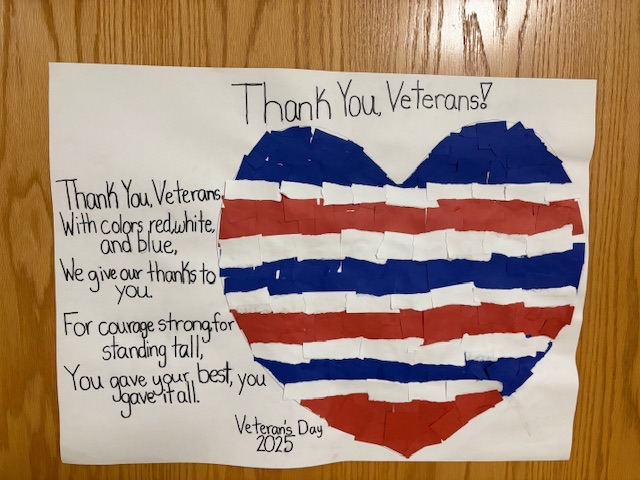 Thank You, Veterans!
Thank You, Veterans
With colors red, white,
and blue,
We give our thanks to
you.
For courage strong, for
standing tall,
You gave your best, you
gave it all.
Veteran's Day
2025